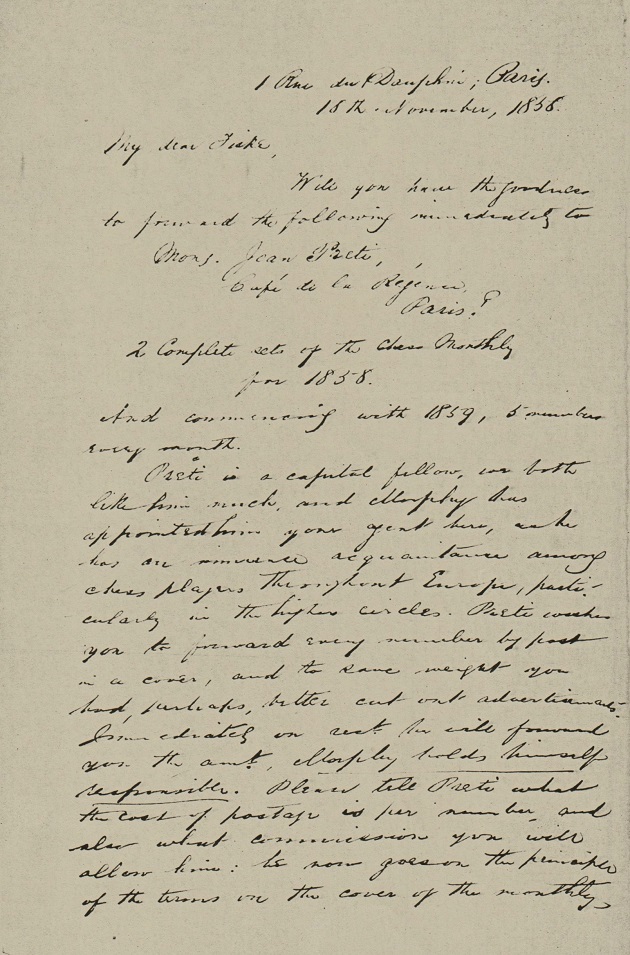 1 Rue du Dauphin, Paris.
18th November, 1858.
My dear Fiske,
Will you have the goodness
to forward the following immediately to
Mons. Jean Preti,
Café de la Régence,
Paris?
2 Complete sets of the Chess Monthly
for 1858.
And commencing with 1859, 5 numbers
every month.
Preti is a capital fellow, we both
like him much, and Morphy has
appointed him your agent here, as he
has an immense acquaintance among
chess players throughout Europe, parti-
cularly in the higher circles. Preti wishes
you to forward every number by post
in a cover, and to save weight you
had, perhaps, better cut out advertisements.
Immediately on rect. he will forward
you the amt., Morphy holds himself
responsible. Please tell Preti what
the cost of postage is per number, and
also what commission you will
allow him: he now goes on the principle
of the terms on the cover of the monthly,